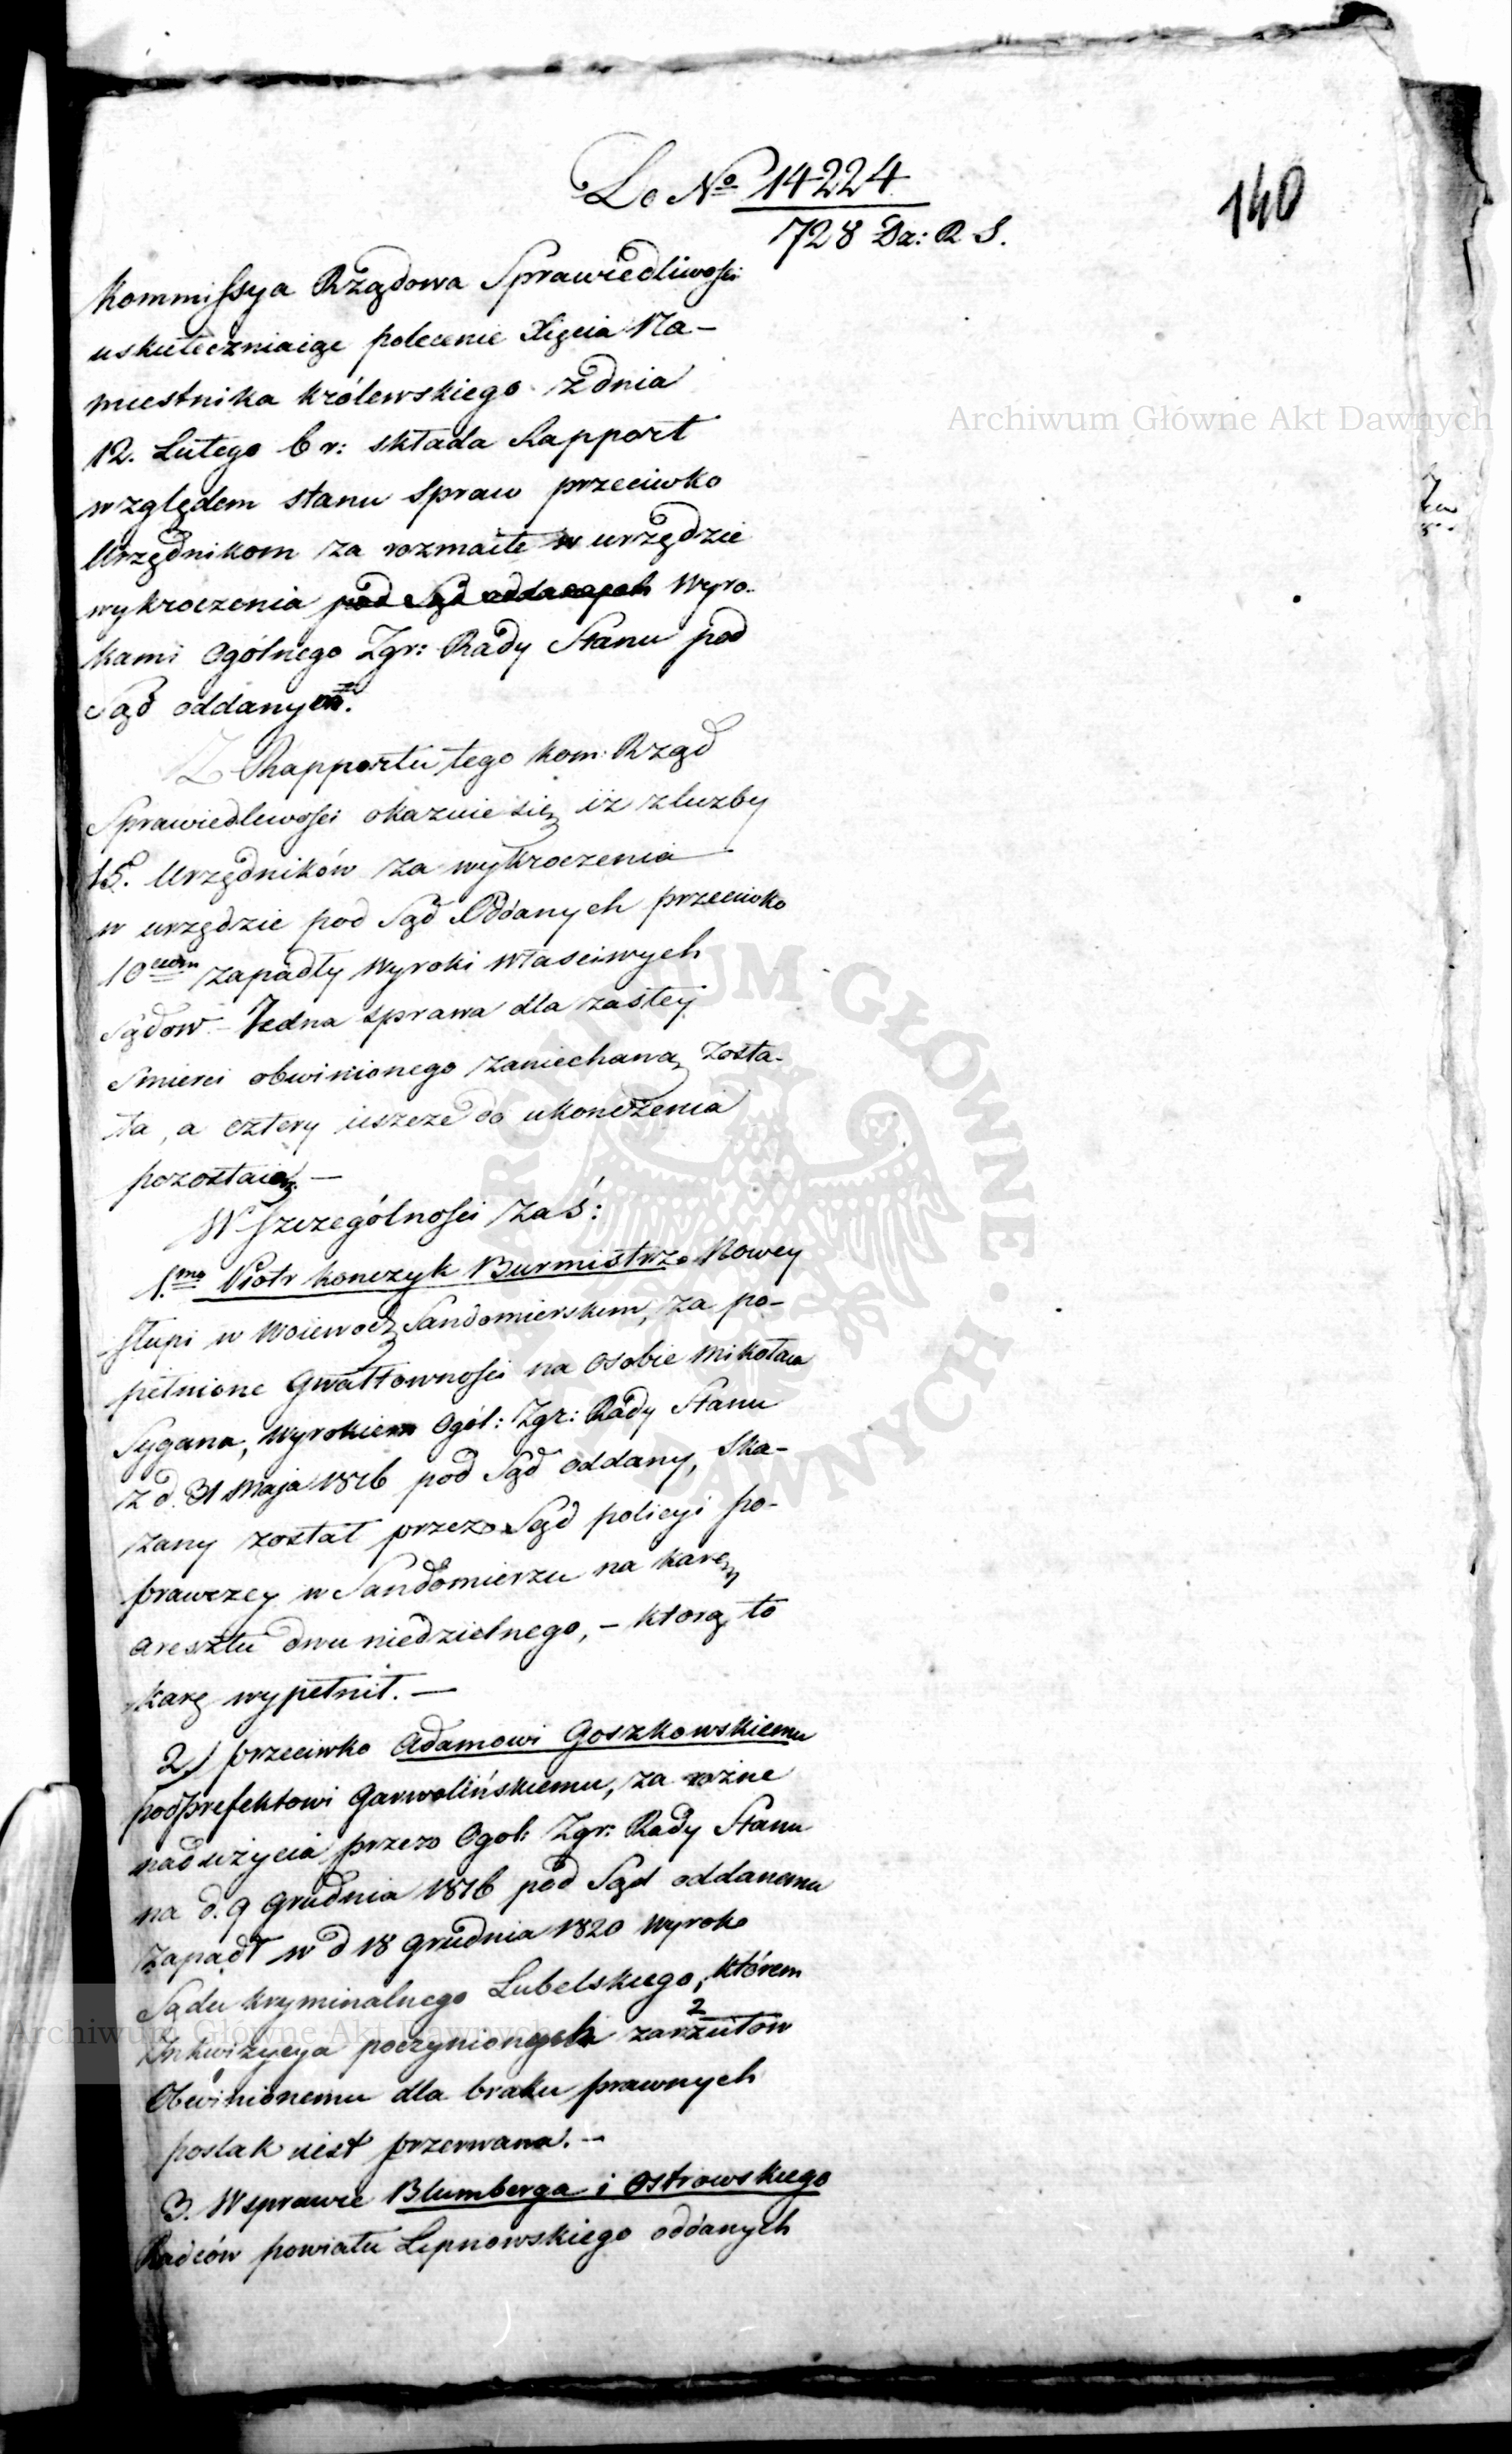 Lo No 14224
140
728 Dz: R S.
Kommissya Rządowa Sprawiedliwości
uskuteczniaiąc polecenie Xięcia Na-
miestnika Królewskiego z dnia
Archiwum Główne Akt Dawnych
12. Lutego b r: składa Rapport
względem stanu Spraw przeciwko
Urzędnikom za rozmaite w urzędzie
wykroczenia pod Sąd oddanych Wyro-
kami Ogólnego Zgr: Rady Stanu pod
Sąd oddanym.
Z Rapportu tego Kom: Rząd
Sprawiedlewości okazuie się iż z luzby
15. Urzędników za wykroczenia
w urzędzie pod Sąd Oddanych przeciwko
10 ciom zapadły Wyroki właściwych
Sądow - Jedna sprawa dla zaszłey
Smierci obwinionego zaniechaną zosta-
ła, a cztery ieszcze do ukończenia
pozostaią. —
W Szczególności zaś:
1.mo Piotr Konczyk Burmistrz Nowey
Słupi w Woiewodz Sandomierskim, za po-
pełnione Gwałtowności na Osobie Mikołaia
Sygana, Wyrokiem Ogól: Zgr: Rady Stanu
z d. 31 Maja 1816 pod Sąd oddany, Ska-
zany został przez Sąd policyi po-
prawczey w Sandomierzu na karę
aresztu dwu niedzielnego, - ktorą to
karę wypełnił. —
2) przeciwko Adamowi Goszkowskiemu
podprefektowi Garwolińskiemu, za rożne
nadużycia przez Ogol: Zgr: Rady Stanu
na d. 9 Grudnia 1816 pod Sąd oddanemu
zapadł w d 18 Grudnia 1820 Wyrok
Sądu Kryminalnego Lubelskiego, którem
Inkwizycya poczynionych 2 zarzutów
Obwinionemu dla braku prawnych
poslak iest przerwana. -
3. W sprawie Blumberga i Ostrowskiego
Radców powiatu Lipnowskiego oddanych
Archiwum Główne Akt Dawnych
ARCHIWUM GŁÓWNE AKT DAWNYCH